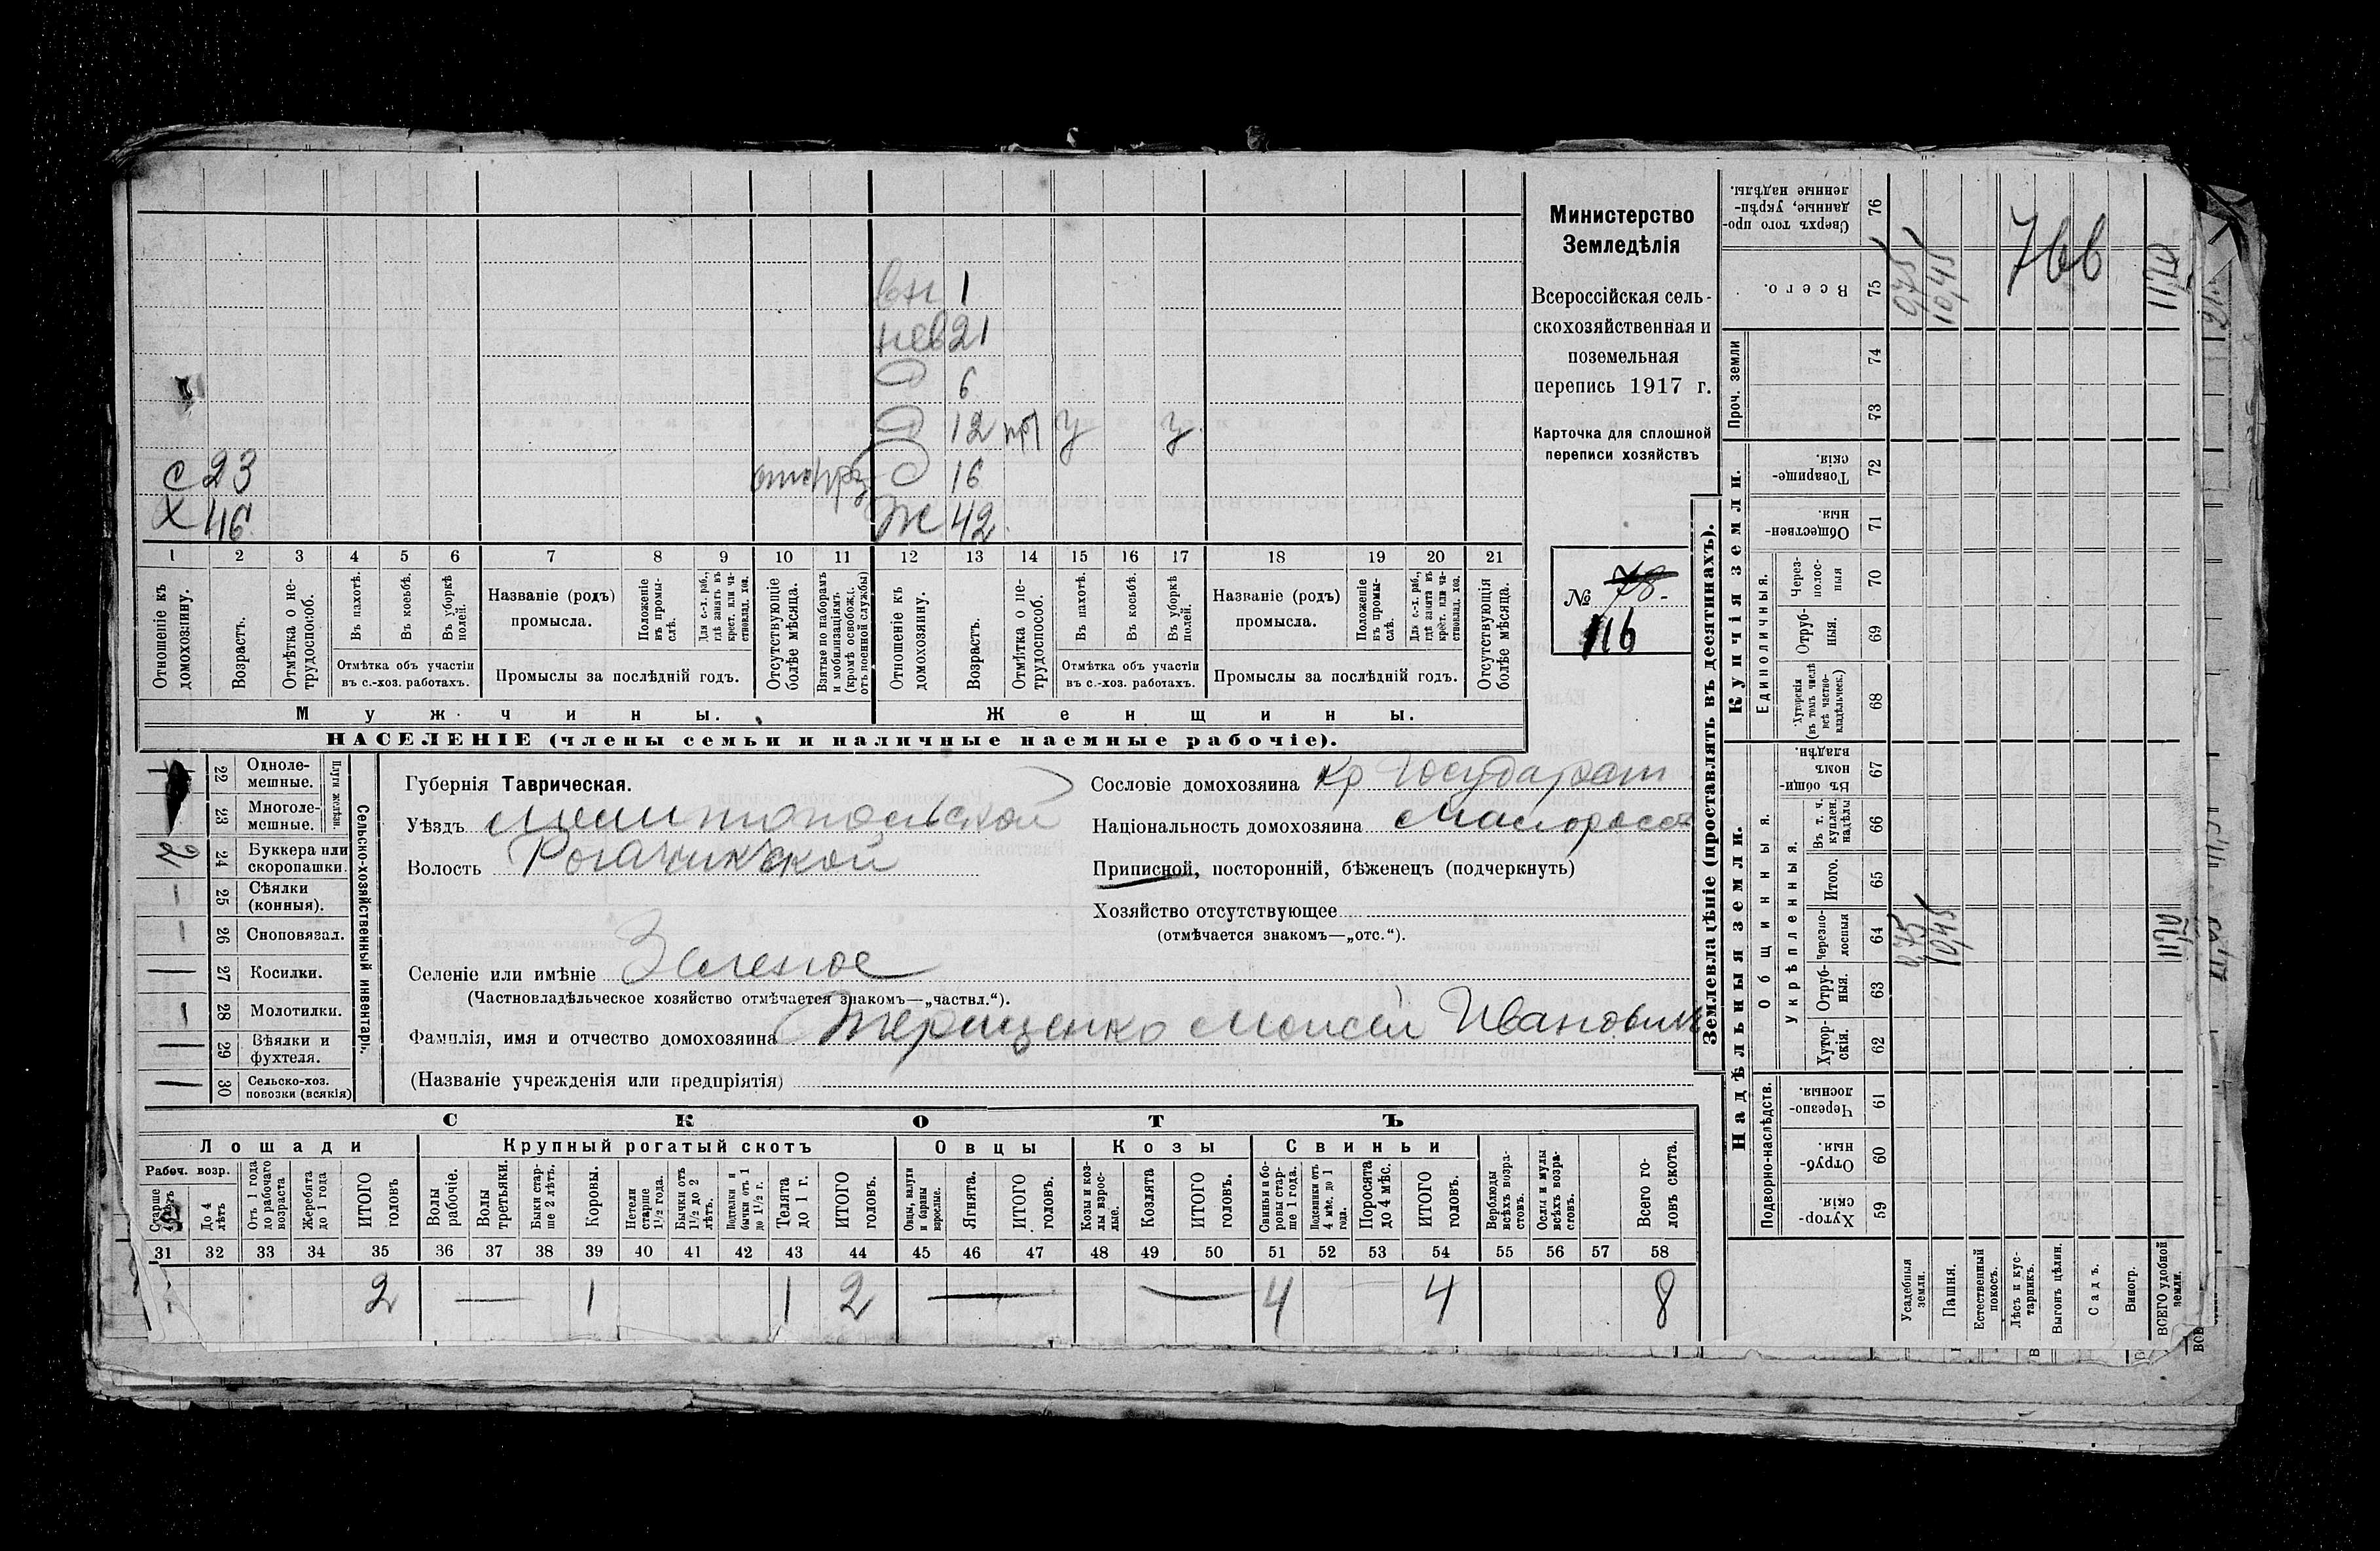 вн 1
нев 21
д 6
д 12 нр у у
с 23 д 16
х 46 ж 42
1 2 3 4 5 6 7 8 9 10 11 12 13 14 15 16 17 18 19 20 21
Отношеніе къ домохозяину.
Возрастъ.
Отмѣтка о не-трудоспособ.
Въ пахотѣ.
Въ косьбѣ.
Въ уборкѣ полей.
Отмѣтка объ участіи
въ с.-хоз. работахъ.
Названіе (родъ)
промысла.
Положеніе въ промы-слѣ.
Для с.-х. раб., гдѣ занятъ въ крест. или ча-стновлад. хоз.
Промыслы за послѣдній годъ.
Отсутствующіе болѣе мѣсяца.
Взятые по наборамъ и мобилизаціямъ (кромѣ освобожд. отъ военной службы)
Отношеніе къ домохозяину.
Возрастъ.
Отмѣтка о не-трудоспособ.
Въ пахотѣ.
Въ косьбѣ.
Въ уборкѣ полей.
Отмѣтка объ участіи
въ с.-хоз. работахъ.
Названіе (родъ)
промысла.
Положеніе въ промы-слѣ.
Для с.-х. раб., гдѣ занята въ крест. или ча-стновлад. хоз.
Промыслы за послѣдній годъ.
Отсутствующія болѣе мѣсяца.
Мужчины. Женщины.
НАСЕЛЕНІЕ (члены семьи и наличные наемные рабочіе).
Министерство
Земледѣлія
Всероссійская сель-
скохозяйственная и
поземельная
перепись 1917 г.
Карточка для сплошной
переписи хозяйствъ
№ 78.
116
22 Одноле-мешные.
23 Многоле-мешные.
Плуги желѣзн.
24 Буккера или скоропашки. 2
25 Сѣялки (конныя). —
26 Сноповязал. —
27 Косилки. —
28 Молотилки. —
29 Вѣялки и фухтеля. —
30 Сельско-хоз. повозки (всякія) —
Сельско-хозяйственный инвентарь.
Губернія Таврическая.
Уѣздъ Мелитопольской
Волость Рогачикской
Селеніе или имѣніе Зеленое
(Частновладѣльческое хозяйство отмѣчается знакомъ—„частвл.“).
Фамилія, имя и отчество домохозяина Терещенко Моисей Иванович
(Названіе учрежденія или предпріятія)
Сословіе домохозяина кр Государст
Національность домохозяина Малоросс
Приписной, посторонній, бѣженецъ (подчеркнуть)
Хозяйство отсутствующее
(отмѣчается знакомъ—„отс.“).
СКОТЪ
Лошади Крупный рогатый скотъ Овцы Козы Свиньи
Рабоч. возр.
Старше 4 лѣтъ
До 4 лѣтъ
Отъ 1 года до рабочаго возраста
Жеребята до 1 года
ИТОГО головъ
Волы рабочіе.
Волы третьяки.
Быки стар-ше 2 лѣтъ.
Коровы.
Нетели старше 1½ года.
Бычки отъ 1½ до 2 лѣтъ.
Подтелки и бычки отъ 1 до 1½ г.
Телята до 1 г.
ИТОГО головъ.
Овцы, валухи и бараны взрослые.
Ягнята.
ИТОГО головъ.
Козы и коз-лы взрос-лые.
Козлята
ИТОГО головъ.
Свиньи и бо-ровы стар-ше 1 года.
Подсвинки отъ 4 мѣс. до 1 года.
Поросята до 4 мѣс.
ИТОГО головъ.
Верблюды всѣхъ возра-стовъ.
Ослы и мулы всѣхъ возра-стовъ.
Всего го-ловъ скота.
31 32 33 34 35 36 37 38 39 40 41 42 43 44 45 46 47 48 49 50 51 52 53 54 55 56 57 58
2 — 1 1 2 — — 4 4 8
Землевладѣніе (проставлять въ десятинахъ).
Надѣльныя земли. Купчія земли. Проч. земли
Подворно-наслѣдств.
Общинныя.
Укрѣпленныя.
Единоличныя.
Хутор-скія. 59
Отруб-ныя. 60
Черезпо-лосныя. 61
Хутор-скія. 62
Отруб-ныя. 63
Черезпо-лосныя 64
Итого. 65
Въ т. ч. куплен. надѣлы 66
Въ общин-номъ владѣн. 67
Хуторскія (въ томъ числѣ всѣ частно-владѣльческ.) 68
Отруб-ныя. 69
Через-полос-ныя 70
Обществен-ныя. 71
Товарище-скія. 72
73
74
Всего. 75
Сверхъ того про-данные, укрѣп-ленные надѣлы. 76
Усадебныя земли. 0,75 0,75
Пашня. 10,45 10,45
Естественный покосъ.
Лѣсъ и кус-тарникъ.
Выгонъ цѣлин.
Садъ.
Виногр.
ВСЕГО удобной земли. 11,20 11,20
766